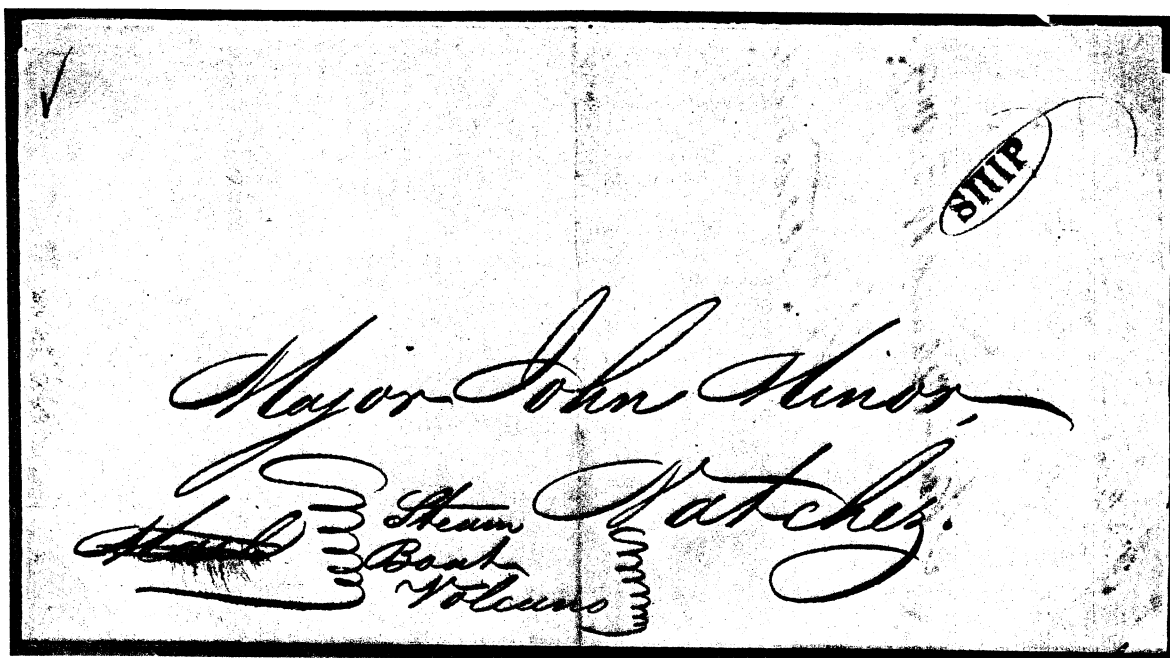 SHIP
Major John Minor,
Natchez.
Steam
Boat
Volcano